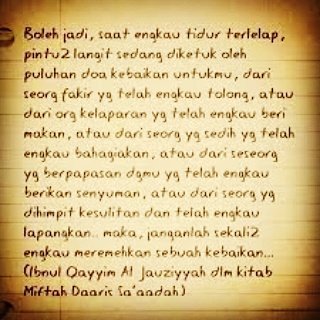 Boleh jadi, saat engkau tidur terlelap,
pintu2 langit sedang diketuk oleh
puluhan doa kebaikan untukmu, dari
seorg fakir yg telah engkau tolong, atau
dari org kelaparan yg telah engkau beri
makan, atau dari seorg yg sedih yg telah
engkau bahagiakan, atau dari seseorg
yg berpapasan dgmu yg telah engkau
berikan senyuman, atau dari seorg yg
dihimpit kesulitan dan telah engkau
lapangkan.. maka, janganlah sekali2
engkau meremehkan sebuah kebaikan...
(Ibnul Qayyim Al Jauziyyah dlm kitab
Miftah Daaris Sa'aadah)